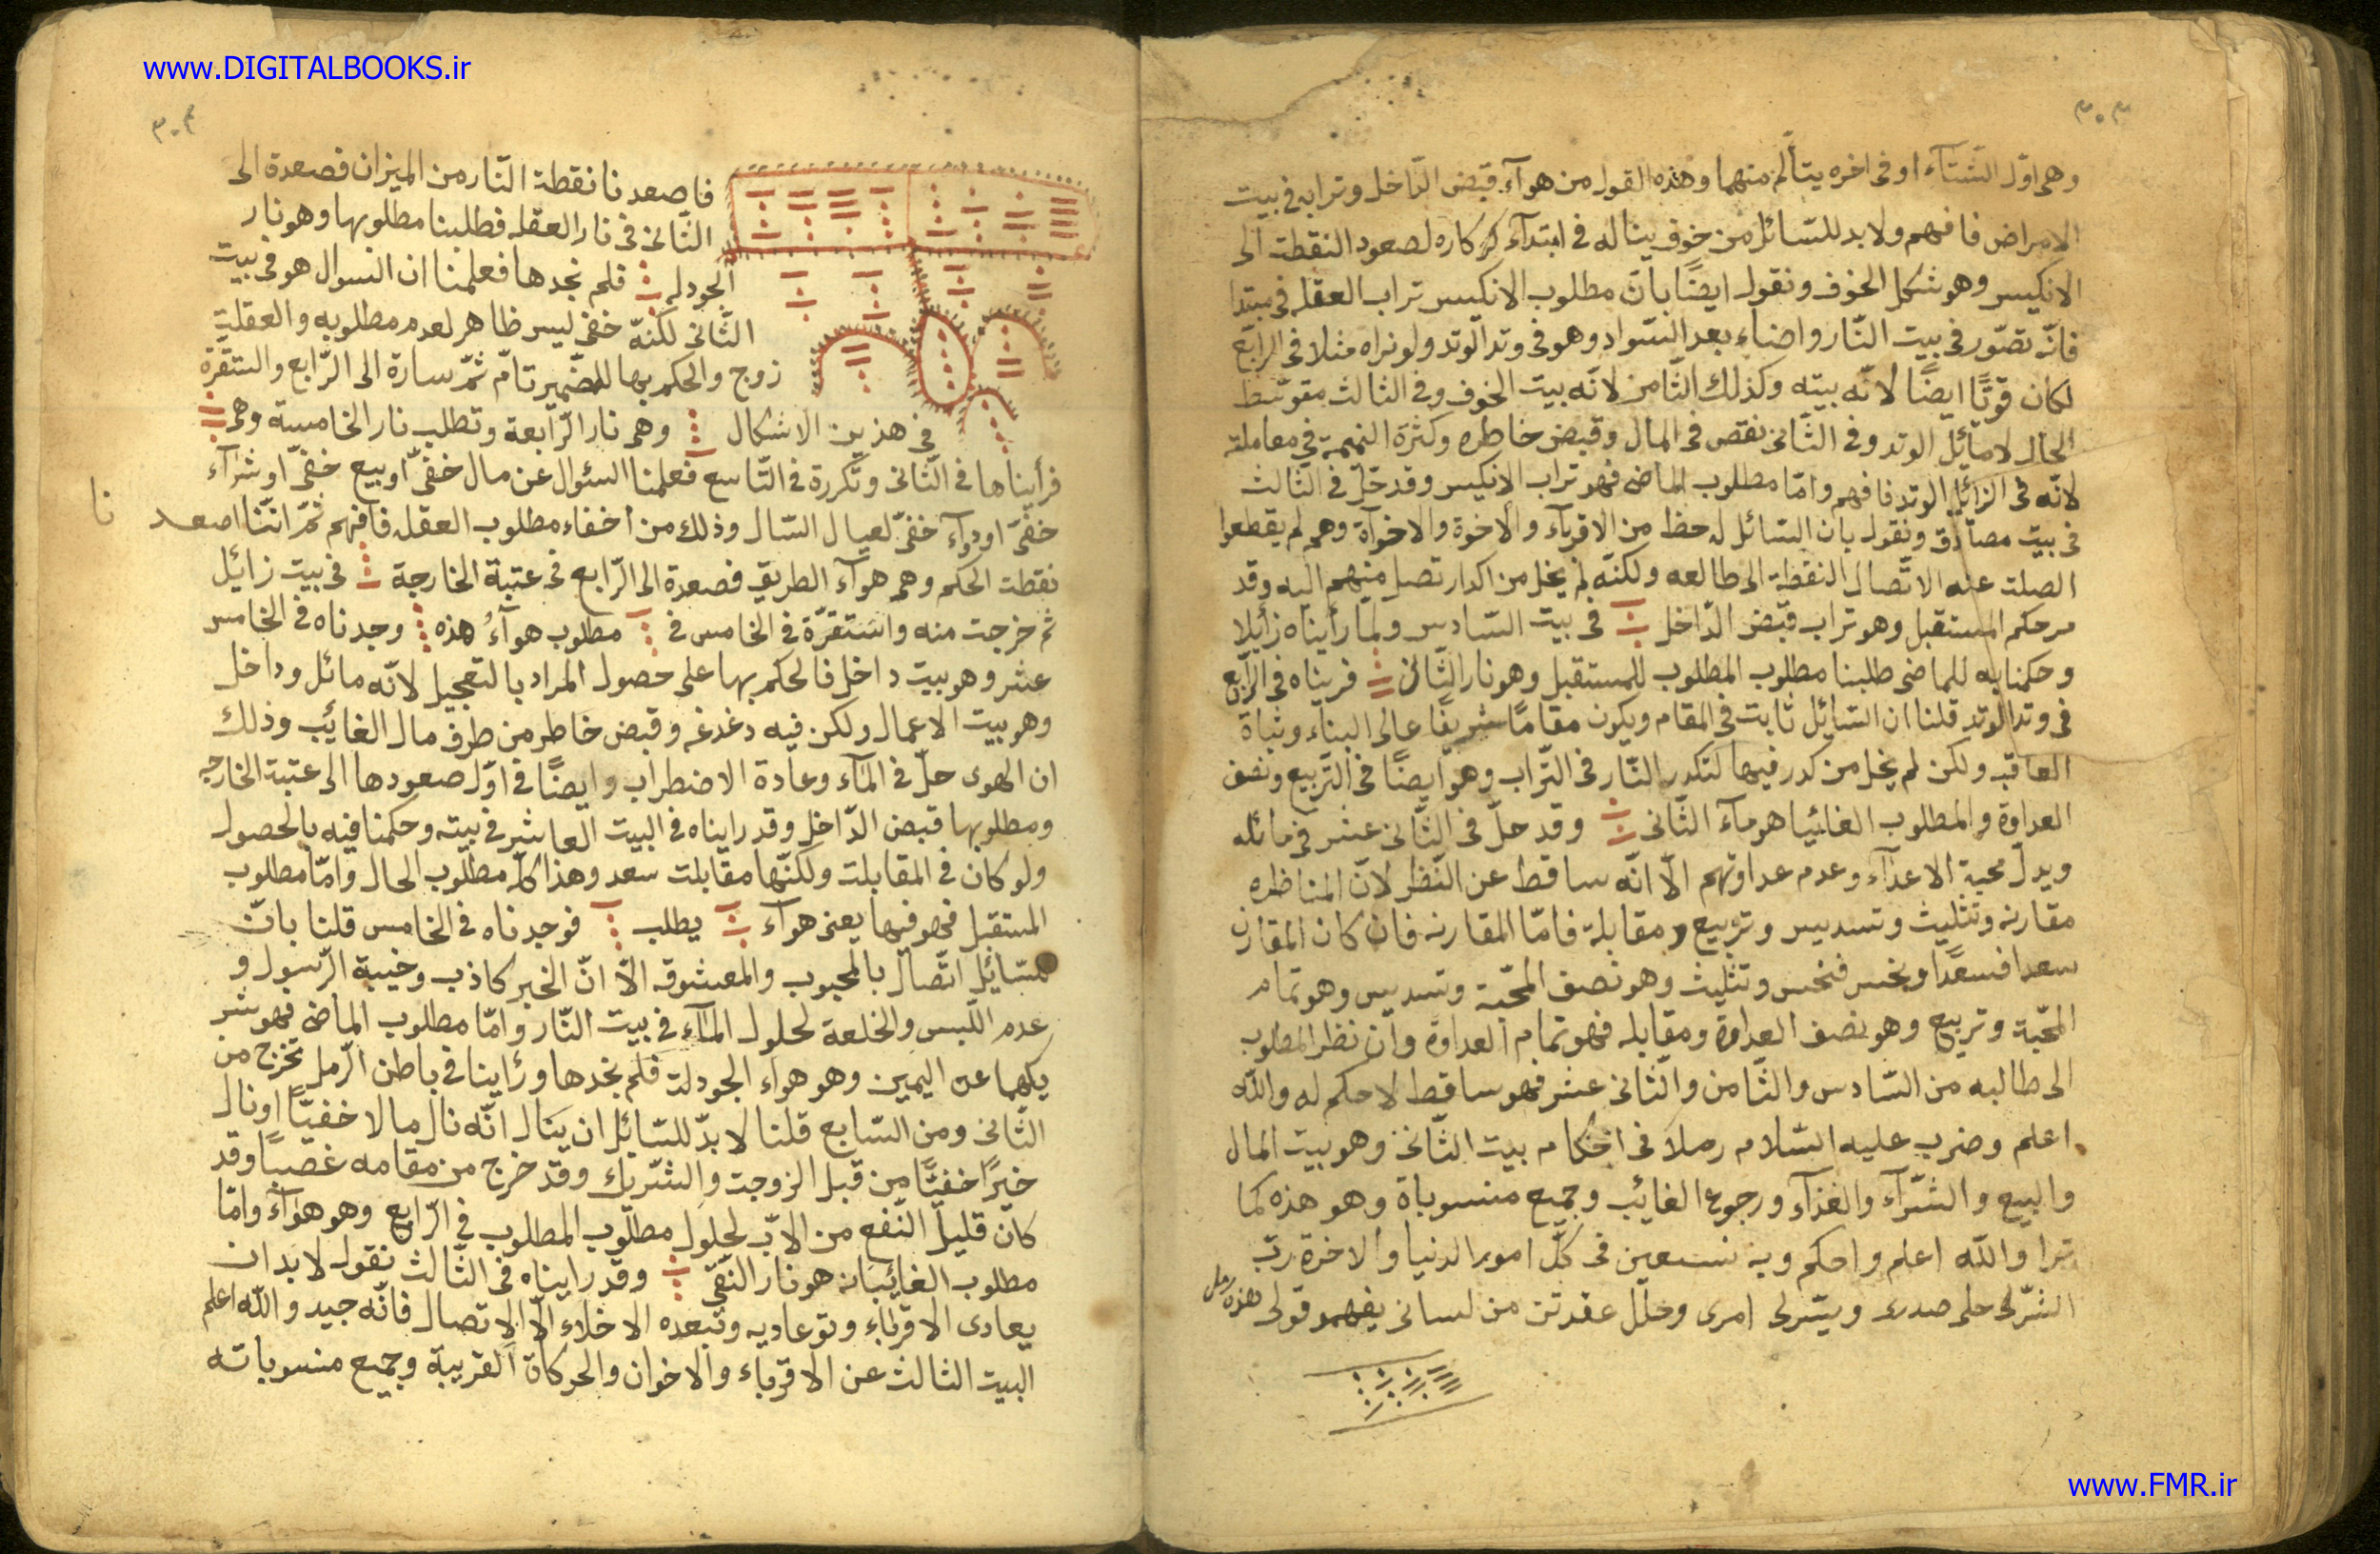 www.DIGITALBOOKS.ir
٣٠٣
وهى اوّل الشّتآء او فى اخره يتألم منهما وهذه القول من هوآء قبض الدّاخل وترابه فى بيت
الامراض فافهم ولابد للسّائل من خوف يناله فى ابتدآء كاره لصعود النقطت الى
الانكيس وهو شكل الخوف ونقول ايضًا بانّ مطلوب الانكيس تراب العقله فى مبتدا
فانّه تصّور فى بيت النّار واضاء بعد السّواد وهو فى وتد الوتد ولو نراه مثلا فى الرابع
لكان قوتًا ايضًا لانّه بيته وكذلك الثّامن لانّه بيت الخوف وفى الثالث متوسّط
الحال لامائل الوتد وفى الثّانى نقص فى المال وقبض خاطره وكثرة النميمة فى معاملة
لانّه فى الزائل الوتد فافهم وامّا مطلوب الماضى فهو تراب الانكيس وقد حلّ فى الثّالث
فى بيت مصادق ونقول بان السّائل له حظ من الاقربآء والاخوة والاخوآة وهم لم يقطعوا
الصلت عنه الاتّصال النقطة الى طالعه ولكنّه لم يخل من اكدار تصل منهم اليه وقد
مر حكم المستقبل وهو تراب قبّض الدّاخل فى بيت السّادس ولمّا رأيناه زائلا
وحكمنا به للماضى طلبنا مطلوب المطلوب للمستقبل وهو نار الثّانى فريناه فى الرّابع
فى وتد الوتد قلنا ان السّائل ثابت فى المقام ويكون مقامًا شريفًا عالى البناء وثباة
العاقبه ولكن لم يخل من كدر فيها لتكدر النّار فى التّراب وهو ايضًا فى التّربيع ونصف
العداوة والمطلوب الغائبيا هو مآء الثّانى وقد حلّ فى الثّانى عشر فى مائله
ويدلّ محبة الاعدآء وعدم عداوتهم الّا انّه ساقط عن النّظر لانّ المناظره
مقارنه وتثليث وتسديس وتربيع ومقابلة فامّا المقارنه فان كان المقارن
سعدا فسعدًا ونحس فنحس وتثليث وهو نصف المحّبة وتسديس وهو تمام
المحّبة وتربيع وهو نصف العداوة ومقابله فهو تمام العداوة وان نظر المطلوب
الى طالبه من السّادس والثّامن والثّانى عشر فهو ساقط لا حكم له والله
اعلم وضرب عليه السّلام رملا فى احكام بيت الثّانى وهو بيت المال
والبيع والشّرآء والغذآء ورجوع الغائب وجميع منسوباة وهو هذه كما
ترا والله اعلم واحكم وبه نستعين فى كلّ امور الدنيا والاخرة ربّ
اشرّلى حلم صدرى ويسّرلى امرى وحلل عقدتن من لسانى يفهمو قولى هذه رمل
٣٠٤
فاصعدنا نقطة النّار من الميزان فصعدة الى
الثّانى فى نار العقله فطلبنا مطلوبها وهو نار
الجودله فلم نجدها فعلمنا ان السوال هو فى بيت
الثّانى لكنّه خفى ليس ظاهر لعدم مطلوبه والعقلية
زوج والحكم بها للضّمير تامّ ثمّ سارة الى الرّابع واستقرّة
فى هذين الاشكال وهى نار الرّابعة وتطلب نار الخامسة وهى
فرأيناها فى الثّانى وتكررة فى التّاسع فعلمنا السئوال عن مال خفىّ او بيع خفىّ او شرآء
خفىّ او دوآء خفىّ لعيال السّال وذلك من اخفاء مطلوب العقله فافهم ثمّ انّنا اصعد نا
نقطت الحكم وهى هوآء الطريق فصعدة الى الرّابع فى عتبة الخارجة فى بيت زائل
ثم خرجت منه واستقرّة فى الخامس فى مطلوب هوآءُ هذه وجدناه فى الخامس
عشر وهو بيت داخل فالحكم بها على حصول المراد بالتعجيل لانّه مائل وداخل
وهو بيت الاعمال ولكن فيه دغدغه وقبض خاطر من طرف مال الغائب وذلك
ان الهوى حلّ فى المآء وعادة الاضطراب وايضًا فى اوّل صعودها الى عتبة الخارجه
ومطلوبها قبض الدّاخل وقد رايناه فى البيت العاشر فى بيته وحكمنا فيه بالحصول
ولو كان فى المقابلت ولكنّها مقابلت سعد وهذا كلّه مطلوب الحال وامّا مطلوب
المستقبل فهو فيها يعنى هوآء يطلب فوجدناه فى الخامس قلنا بانّ
للسّائل اتّصال بالمحبوب والمعشوقه الّا انّ الخبر كاذب وخيبة الرّسول و
عدم اللّبس والخلعة لحلول المآء فى بيت النّار وامّا مطلوب الماضى فهو شر
يكهما عن اليمين وهو هواء الجودلت فلم نجدها ورئاينا فى باطن الرّمل تخرج من
الثّانى ومن السّابع قلنا لابدّ للسّائل ان ينال انّه نال مالا خفيّا او نال
خيرًا خفيّا من قبل الزوجت والشّريك وقد خرج من مقامه غصبًا وقد
كان قليل النّفع من الابّ لحلول مطلوب المطلوب فى الرّابع وهو هوآء وامّا
مطلوب الغائبانه هو نار النّقى وقد رايناه فى الثّالث نقول لابد ان
يعادى الاقرباء وتوعاديه وتبعده الاخلاء الّا الاتصال فانّه جيد والله اعلم
البيت الثالث عن الاقرباء والاخوان والحركاة القريبة وجميع منسوباته
www.FMR.ir